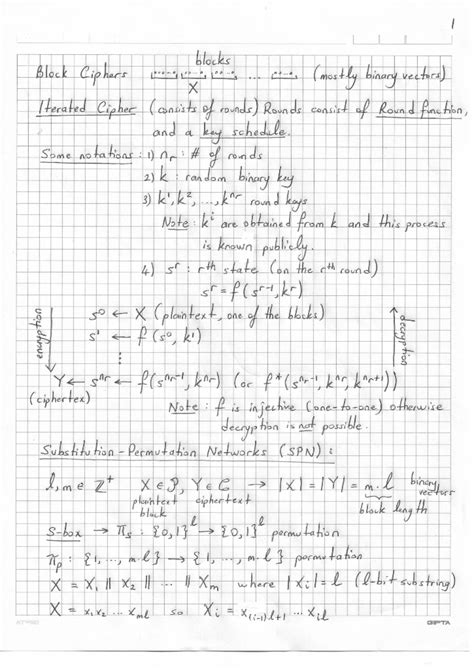 1
blocks
Block Ciphers ... (mostly binary vectors)
X
Iterated Cipher (consists of rounds) Rounds consist of Round function,
and a key schedule.
Some notations : 1) nr : # of rounds
2) k : random binary key
3) k¹, k², ..., k^nr round keys
Note : kⁱ are obtained from k and this process
is known publicly.
4) s^r : rth state (on the rth round)
s^r = f(s^r-1, k^r)
encryption
decryption
s⁰ ← X (plaintext, one of the blocks)
s¹ ← f(s⁰, k¹)
...
Y ← s^nr ← f(s^nr-1, k^nr) (or f*(s^nr-1, k^nr, k^nr+1))
(ciphertex)
Note : f is injective (one-to-one) otherwise
decryption is not possible.
Substitution-Permutation Networks (SPN) :
l, m ∈ Z⁺ X ∈ P, Y ∈ C → |X| = |Y| = m·l binary vectors
plaintext block ciphertext block length
S-box → π_s : {0,1}^l → {0,1}^l permutation
π_p : {1, ..., m·l} → {1, ..., m·l} permutation
X = X₁ || X₂ || ... || X_m where |X_i| = l (l-bit substring)
X = x₁ x₂ ... x_ml so X_i = x_(i-1)l+1 ... x_il
GIPTA